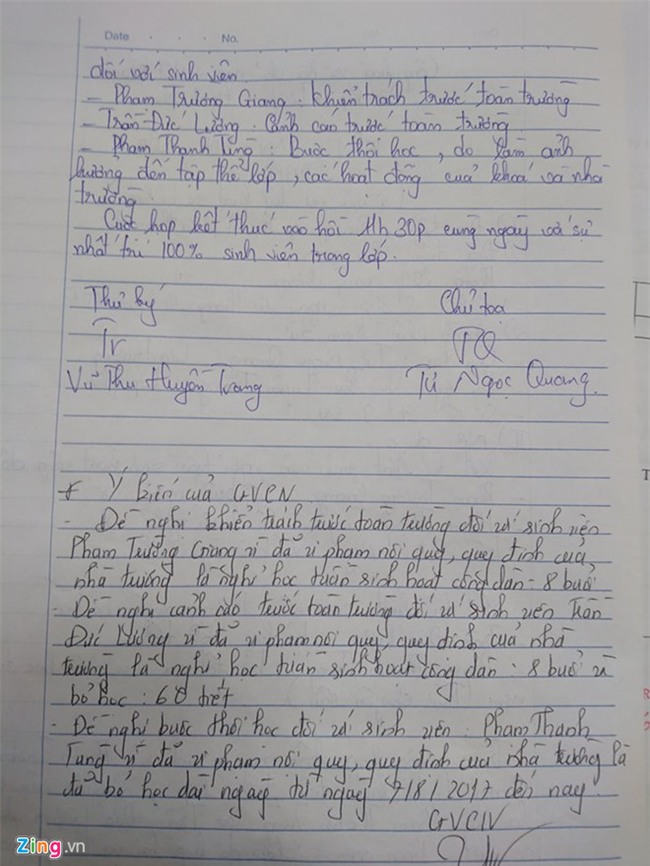 Date . . . No.
đối với sinh viên
- Phạm Trường Giang : Khiển trách trước toàn trường
- Trần Đức Lương : Cảnh cáo trước toàn trường
- Phạm Thanh Tùng : Buộc thôi học, do làm ảnh
hưởng đến tập thể lớp, các hoạt động của khoa và nhà
trường.
Cuộc họp kết thúc vào hồi 11h30p cùng ngày với sự
nhất trí 100% sinh viên trong lớp.
Thư ký Chủ tọa
Tr TQ
Vũ Thu Huyền Trang Từ Ngọc Quang.
* Ý kiến của GVCN
- Đề nghị khiển trách trước toàn trường đối với sinh viên
Phạm Trường Giang vì đã vi phạm nội quy, quy định của
nhà trường là nghỉ học tuần sinh hoạt công dân - 8 buổi
- Đề nghị cảnh cáo trước toàn trường đối với sinh viên Trần
Đức Lương vì đã vi phạm nội quy, quy định của nhà
trường là nghỉ học tuần sinh hoạt công dân - 8 buổi và
bỏ học : 68 tiết
- Đề nghị buộc thôi học đối với sinh viên : Phạm Thanh
Tùng vì đã vi phạm nội quy, quy định của nhà trường là
đã bỏ học dài ngày từ ngày 7/8/2017 đến nay.
GVCN
Zing.vn